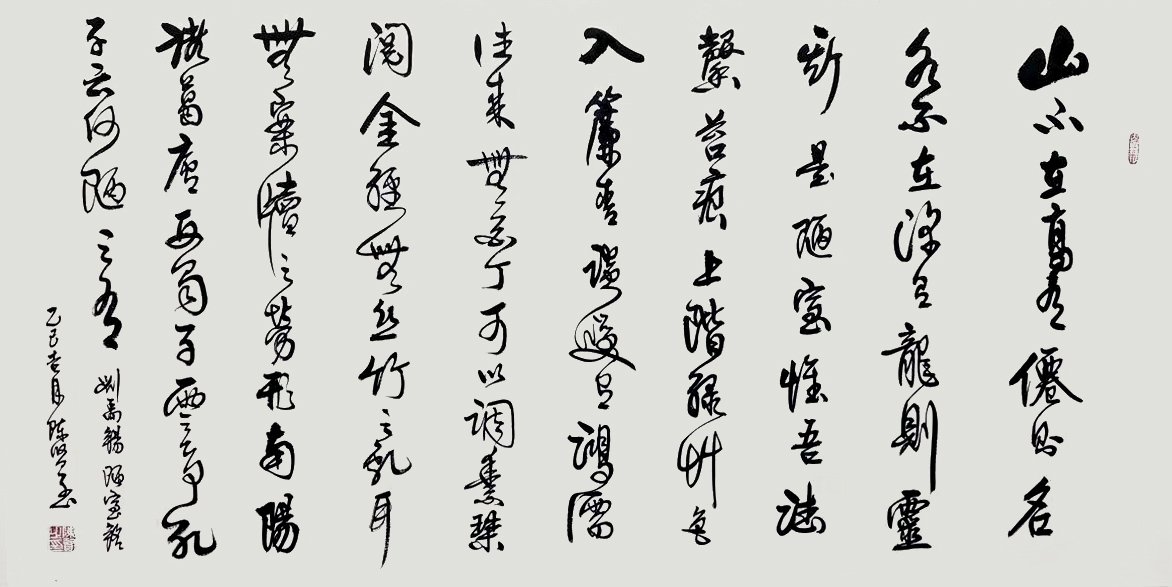 山不在高有僊則名
水不在深有龍則靈
斯是陋室惟吾德
馨苔痕上階綠艸色
入簾青談笑有鴻儒
往來無白丁可以調素琴
閱金經無絲竹之亂耳
無案牘之勞形南陽
諸葛廬西蜀子雲亭孔
子云何陋之有
劉禹錫陋室銘
乙巳月陈书